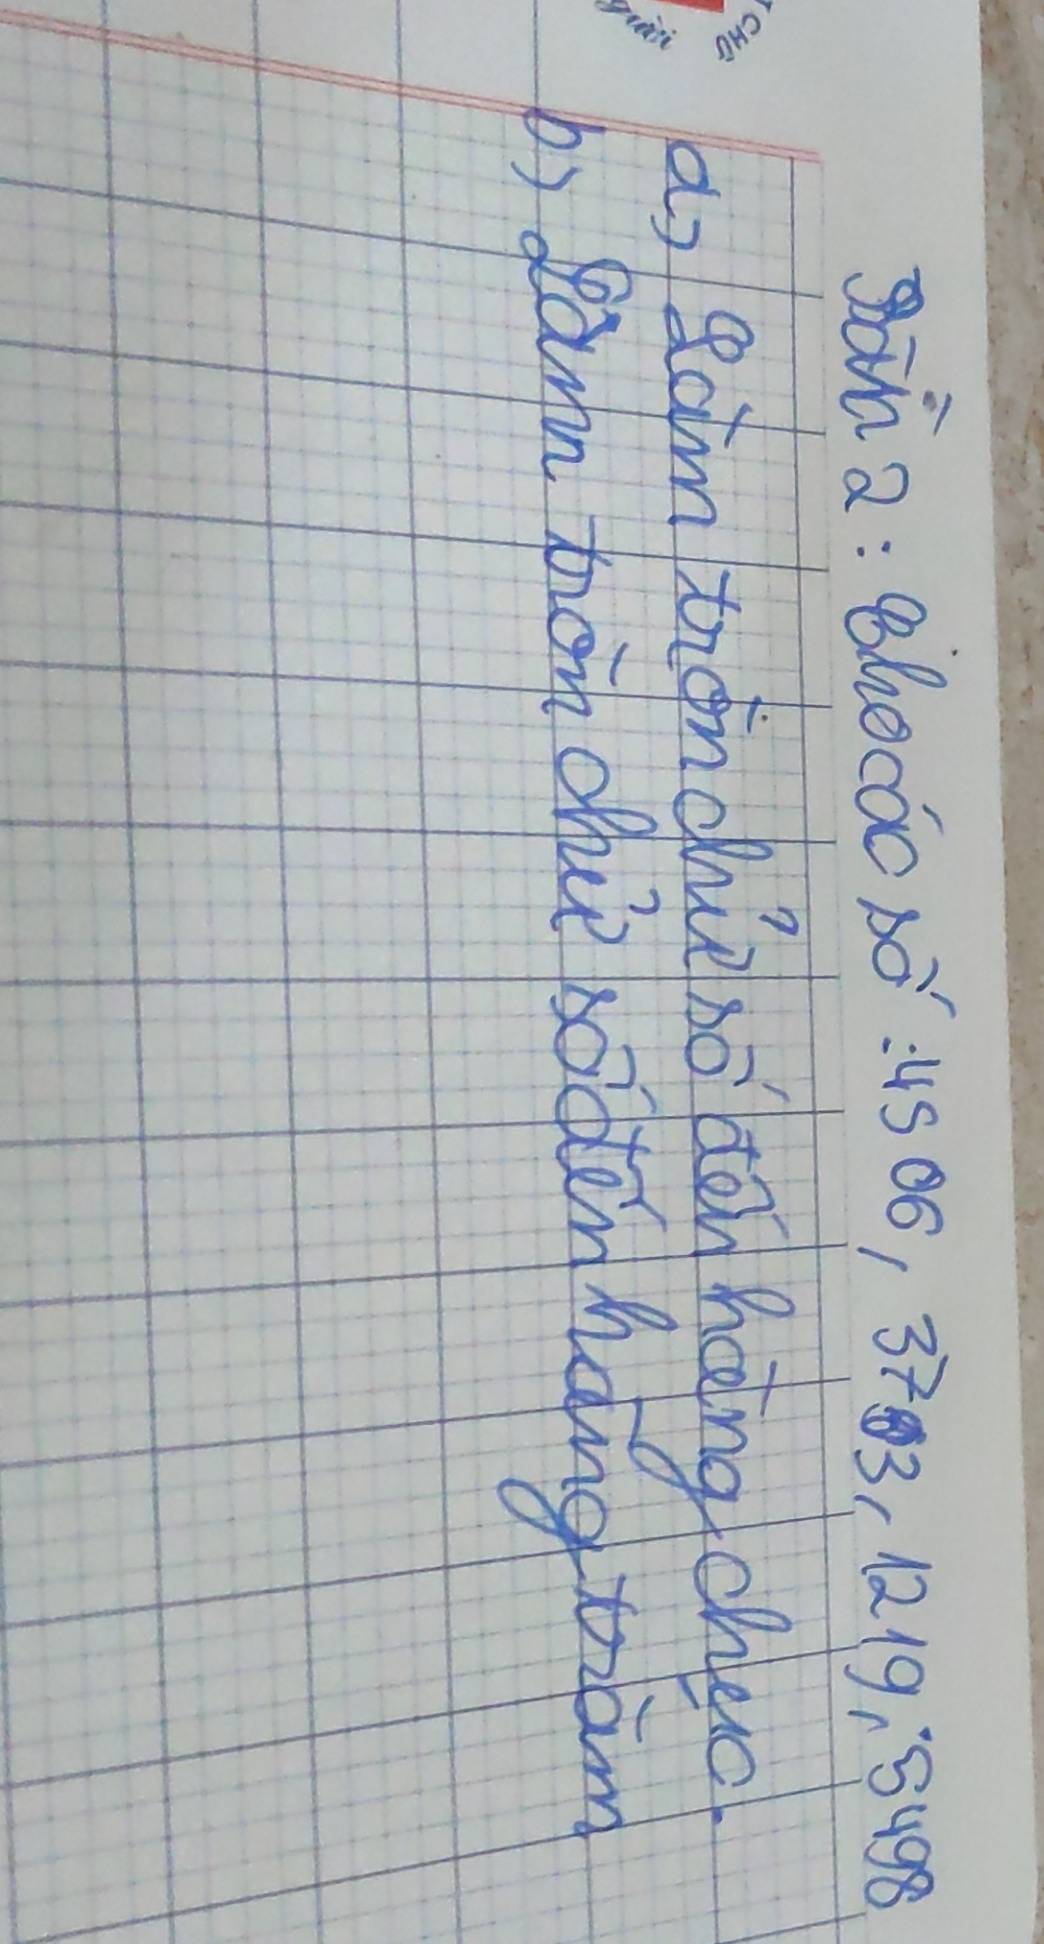 Bài 2: Cho các số: 4506, 3703, 1219, 5498
a) Làm tròn chữ số đến hàng chục.
b) Làm tròn chữ số đến hàng trăm
CHỮ
người